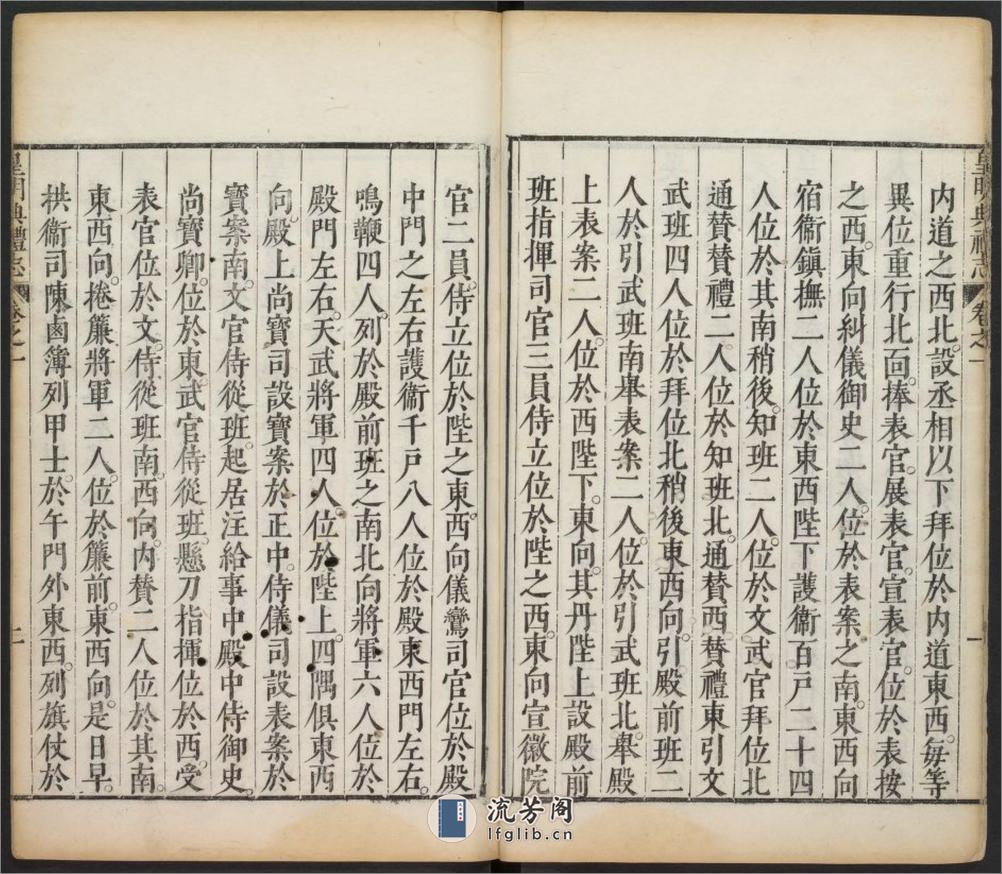 皇明典禮志 卷之一 一
內道之西北。設丞相以下拜位於內道東西。每等
異位重行北面。捧表官。展表官。宣表官。位於表按
之西。東向糾儀御史二人。位於表案之南。東西向
宿衛鎮撫二人位於東西陛下護衛百戶二十四
人位於其南稍後。知班二人。位於文武官拜位北
通贊贊禮二人位於知班北。通贊西贊禮東引文
武班四人位於拜位北稍後東西向。引殿前班二
人於引武班南舉表案二人。位於引武班北。舉殿
上表案二人。位於西陛下。東向。其丹陛上設殿前
班指揮司官三員侍立位於陛之西。東向宣徽院
官二員。侍立位於陛之東。西向儀鸞司官位於殿
中門之左右護衛千戶八人位於殿東西門左右。
鳴鞭四人。列於殿前班之南北向將軍六人位於
殿門左右。天武將軍四人。位於陛上。四隅俱東西
向。殿上尚寶司設寶案於正中。侍儀司設表案於
寶案南。文官侍從班。起居注給事中殿中侍御史。
尚寶卿。位於東。武官侍從班。懸刀指揮位於西。受
表官位於文。侍從班南。西向。內贊二人位於其南。
東西向。捲簾將軍二人。位於簾前。東西向。是日早。
拱衛司陳鹵簿列甲士。於午門外東西。列旗仗於
皇明典禮志 卷之一 二
流芳閣
lfglib.cn